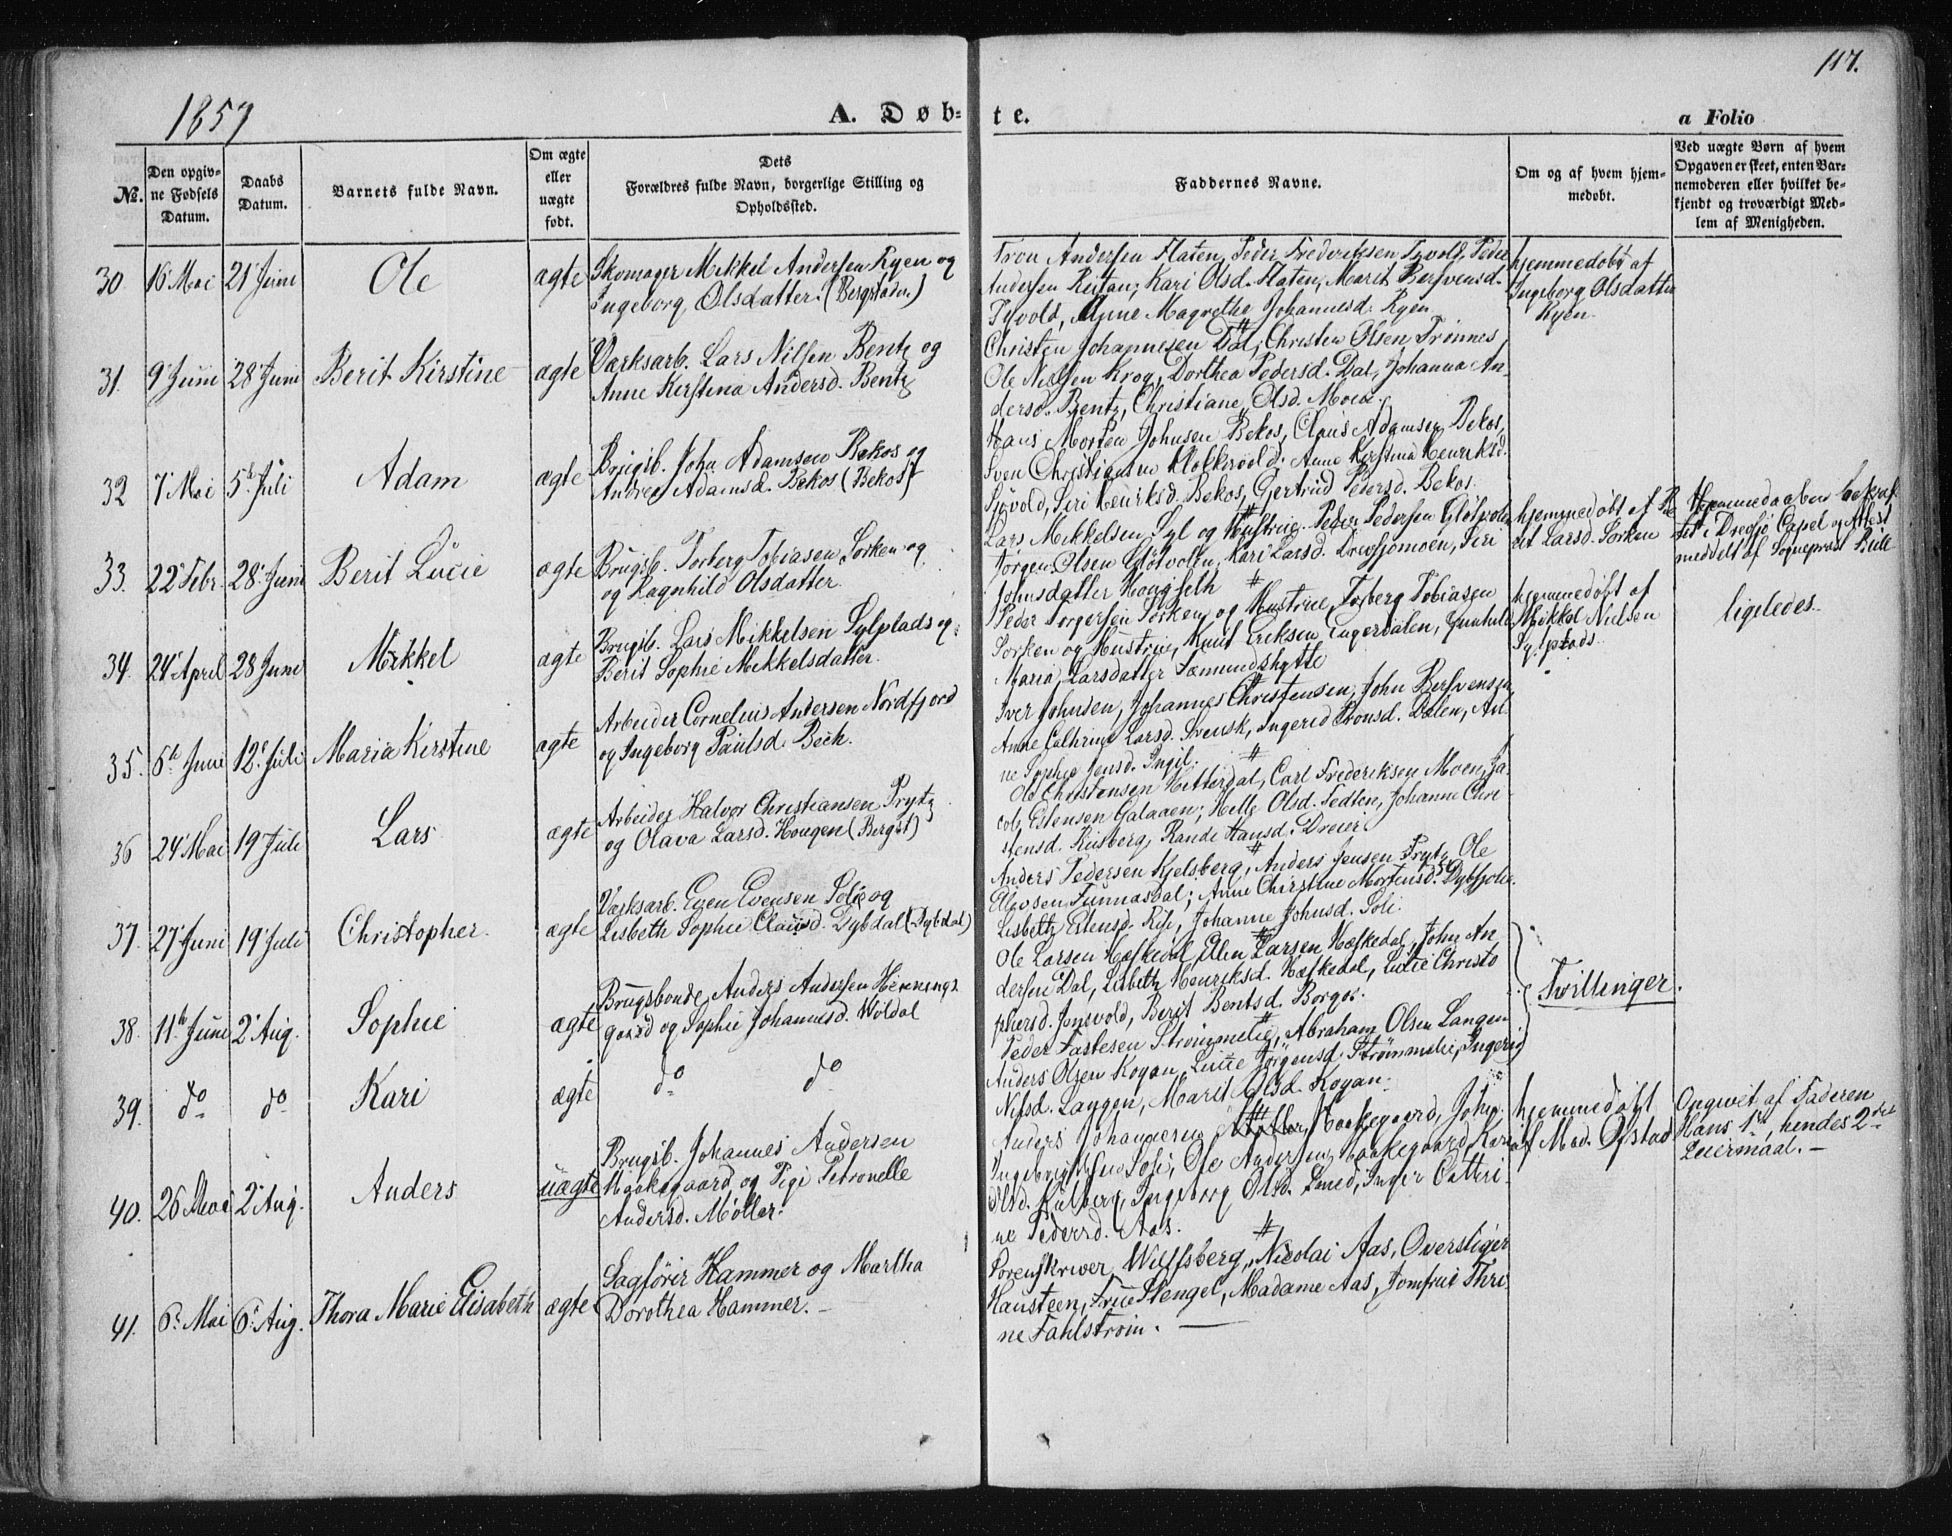 117.
1857
A. Døb-
te.
a Folio
No.
Den opgiv-
ne Fødsels
Datum.
Daabs
Datum.
Barnets fulde Navn.
Om ægte
eller
uægte
født.
Dets
Forældres fulde Navn, borgerlige Stilling og
Opholdssted.
Faddernes Navne.
Om og af hvem hjem-
medøbt.
Ved uægte Børn af hvem
Opgaven er skeet, enten Bar-
nemoderen eller hvilket be-
kjendt og troværdigt Med-
lem af Menigheden.
30. 16 Mai 21 Juni Ole ægte
Skomager Mikkel Andersen Ryen og
Ingeborg Olsdatter. (Bergstaden.)
Tron Andersen Flaten, Peder Fredriksen Tyvold, Peder
Andersen Reitan; Kari Olsd. Flaten, Marit Bersvensd.
Tyvold, Anne Magrethe Johannesd. Ryen
hjemmedøbt af
Ingeborg Olsdatter
Ryen.
31. 9 Juni 28 Juni Berit Kirstine ægte
Værksarb. Lars Nilsen Bentz og
Anne Kerstina Andersd. Bentz
Christen Johannesen Dal, Christen Olsen Trønnes
Ole Nielsen Krog, Dorthea Pedersd. Dal, Johanna An-
dersd. Bentz, Christiane Olsd. Moen.
32 7 Mai 5 Juli Adam ægte
Brugsb. John Adamsen Bekos og
Andrea Adamsd. Bekos (Bekos)
Hans Morten Johnsen Bekos, Claus Adamsen Bekos,
Sven Christiansen Klokkervold; Anne Kerstina Henriksd.
Sjøvold, Siri Henriksd. Bekos, Gertrud Pedersd. Bekos.
33. 22 Febr. 28 Juni Berit Lucie ægte
Brugsb. Torberg Tobiasen Sorken og
og Ragnhild Olsdatter.
Lars Mikkelsen Syl og Hustrue, Peder Pedersen Gløtvolen
Jørgen Olsen Gløtvolen, Kari Larsd. Drevsjømoen, Siri
Johnsdatter Hougseth
hjemmedøbt af Be
rit Larsd. Sorken
Hjemmedaaben bekræf
tet i Drevsjø Capel og Attest
meddelt af Sognepræst Bull
34. 24 April 28 Juni Mikkel ægte
Brugsb. Lars Mikkelsen Sylplads og
Berit Sophie Mikkelsdatter.
Peder Torgersen Sorken og Hustrue, Torberg Tobiasen
Sorken og Hustrue, Knut Eriksen Engerdalen, Gunhild
Maria Larsdatter Fæmundshytte
hjemmedøbt af
Mikkel Nielsen
Sylplads.
ligeledes.
35. 6te Juni 12 Juli Maria Kirstine ægte
Arbeider Cornelius Andersen Nordfjord
og Ingeborg Paulsd. Bech.
Iver Johnsen, Johannes Christensen, John Bersvensen
Anne Cathrine Larsd. Svensk, Ingerid Tronsd. Dalen, An-
ne Sophie Jensd. Ingil.
36 24 Mai 19 Juli Lars ægte
Arbeider Halvor Christiansen Prytz
og Olava Larsd. Hougen (Bergst)
Ole Christensen Hitterdal, Carl Frederiksen Moen, Ja-
cob Estensen Galaaen; Helle Olsd. Tedten, Johanne Chri-
stensd. Riisberg, Rande Hansd. Dreier
37. 27 Juni 19 Juli Christopher. ægte
Værksarb. Even Evensen Solie og
Lisbeth Sophie Clausd. Dybdal (Dybdal)
Anders Pedersen Kjelsberg, Anders Jensen Prytz, Ole
Olavsen Funnasdal; Anne Chirstine Mortensd. Dybfjøle.
Lisbeth Estensd. Rise, Johanne Johnsd. Soli.
38. 11te Juni 2 Aug. Sophie ægte
Brugsbonde Anders Andersen Hennings
gaard og Sophie Johannesd. Woldal
Ole Larsen Hæskedal, Elen Larsen Hæskedal, John An
dersen Dal, Lisbeth Henriksd. Hæskedal, Lucie Christo
phersd. Jonsvold, Berit Bentsd. Borgos.
Tvillinger.
39. do do Kari ægte do do
Peder Fastesen Strømmelie, Abraham Olsen Langen
Anders Olsen Kogan, Lucie Jørgensd. Strømmelie, Ingerid
Nilsd. Langen, Marit Olsd. Kogan.
40. 26 Mai 2 Aug. Anders uægte
Brugsb. Johannes Andersen
Haakegaard og Pige Petronelle
Andersd. Møller.
Anders Johannesen Haakegaard, John
Ingebrigtsen Soli, Ole Andersen Haakegaard, Kari
Olsd. Ingeborg Olsd. Inger Cathri-
ne Pedersd. Aas.
hjemmedøbt
af Mad. Ofstad
Ongivet af Faderen
Hans 1ste, hendes 2det
Leiermaal. —
41. 6 Mai 6 Aug. Thora Marie Elisabeth ægte
Sagfører Hammer og Martha
Dorothea Hammer. —
Sorenskriver Wulfsberg, Nicolai Aas, Overstiger
Hansteen, Frue Stengel, Madame Aas, Jomfrue Thri
ne Fahlstrøm. —